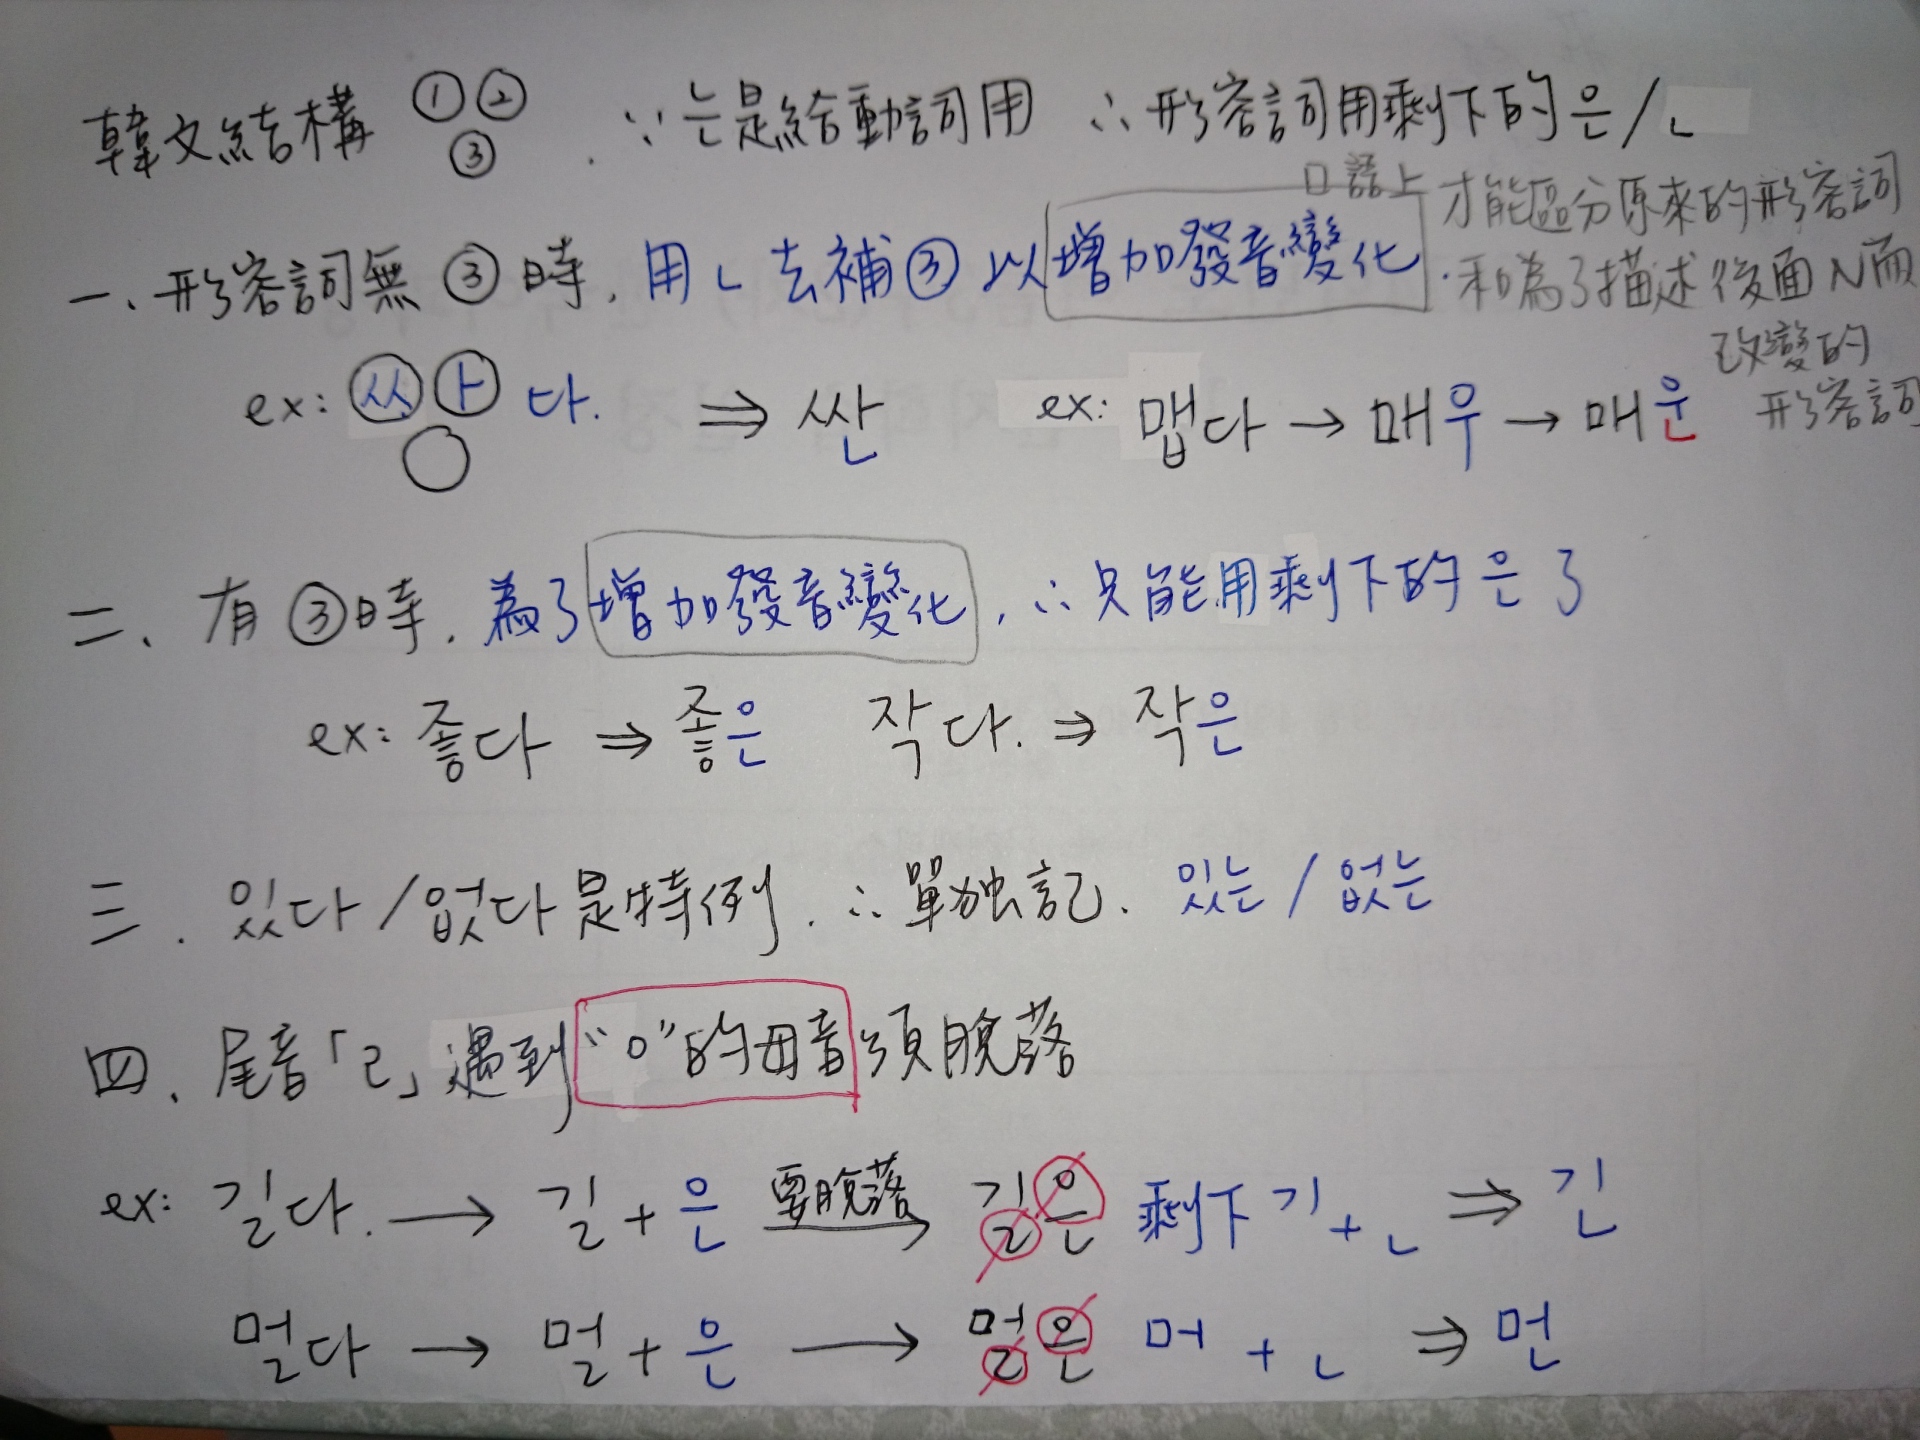 韓文結構 ① ② ③ . ∵ 는是給動詞用 ∴ 形容詞用剩下的은/ㄴ
口語上 才能區分原來的形容詞
一、形容詞無③時, 用ㄴ去補③以增加發音變化 . 和為了描述後面N而
改變的
形容詞
ex: ㅆ ㅏ 다. ⇒ 싼 ex: 맵다 → 매우 → 매운
二、有③時, 為了增加發音變化, ∴只能用剩下的은了
ex: 좋다 ⇒ 좋은 작다. ⇒ 작은
三. 있다/없다是特例. ∴單独記. 있는/없는
四、尾音「ㄹ」遇到"ㅇ"的母音須脫落
ex: 길다. → 길+은 要脫落→ 길은 剩下 기+ㄴ ⇒ 긴
멀다 → 멀+은 → 멀은 머+ㄴ ⇒ 먼